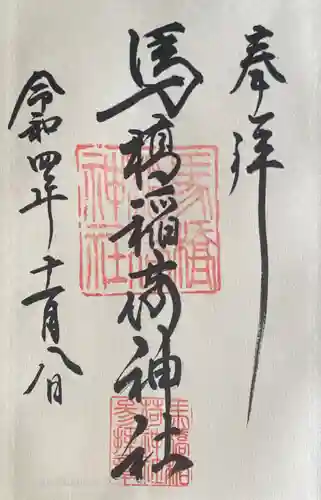 奉拝
馬橋稲荷神社
令和四年十一月八日
馬橋
稲荷
神社